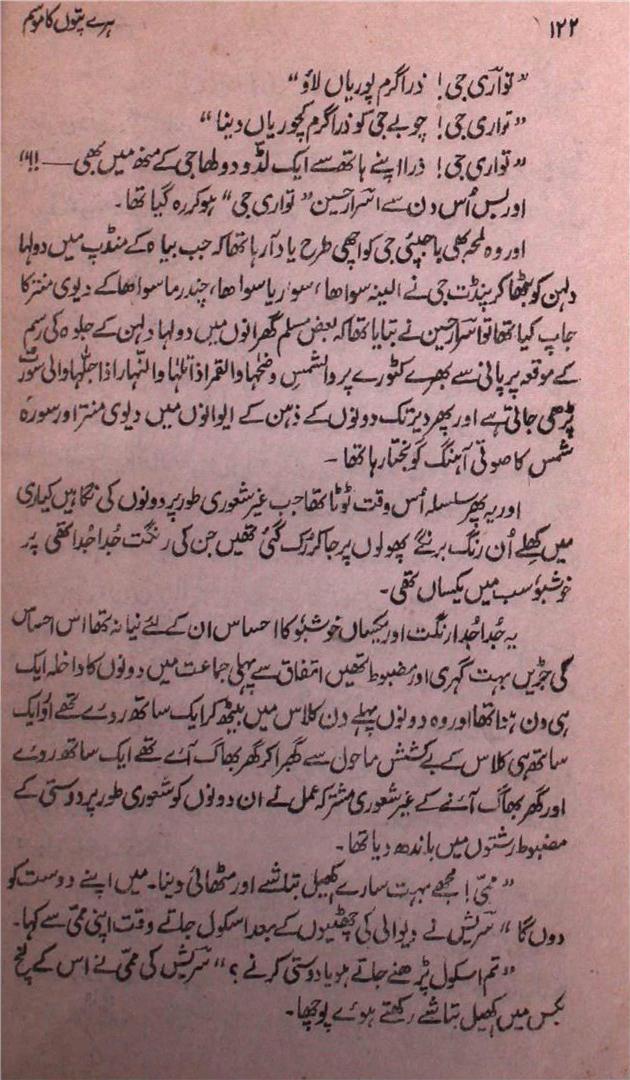 ۱۲۲ ہرے پتوں کا موسم
”تواری جی! ذرا گرم پوریاں لاؤ“
”تواری جی! چوبے جی کو ذرا گرم کچوریاں دینا“
”تواری جی! ذرا اپنے ہاتھ سے ایک لڈو دولھا جی کے منھ میں بھی ــــ!!“
اور بس اُس دن سے اسرار حسین ”تواری جی“ ہو کر رہ گیا تھا۔
اور وہ لمحہ بھی باجپئی جی کو اچھی طرح یاد آ رہا تھا کہ جب بیاہ کے منڈپ میں دولہا
دلہن کو بٹھا کر پنڈت جی نے اگینہ سواھا، سوریا سواھا، چندرما سواھا کے دیوی منتر کا
جاپ کیا تھا تو اسرار حسین نے بتایا تھا کہ بعض مسلم گھرانوں میں دولہا دلہن کے جلوہ کی رسم
کے موقعہ پر پانی سے بھرے کٹورے پر والشمسِ وضحٰہا والقمر اذا تلٰہا والنہار اذا جلّٰہا والی سورت
پڑھی جاتی ہے اور پھر دیر تک دونوں کے ذہن کے ایوانوں میں دیوی منتر اور سورہ
شمس کا صوتی آہنگ گونجتا رہا تھا۔
اور یہ پھر سلسلہ اُس وقت ٹوٹا تھا جب غیر شعوری طور پر دونوں کی نگاہیں کیاری
میں کھلے اُن رنگ برنگے پھولوں پر جا کر رک گئی تھیں جن کی رنگت جُدا جُدا تھی پر
خوشبو سب میں یکساں تھی۔
یہ جُدا جُدا رنگت اور یکساں خوشبو کا احساس ان کے لئے نیا نہ تھا اس احساس
کی جڑیں بہت گہری اور مضبوط تھیں اتفاق سے پہلی جماعت میں دونوں کا داخلہ ایک
ہی دن ہوا تھا اور وہ دونوں پہلے دن کلاس میں بیٹھ کر ایک ساتھ روئے تھے اور ایک
ساتھ ہی کلاس کے بے کشش ماحول سے گھبرا کر گھر بھاگ آئے تھے ایک ساتھ روئے
اور گھر بھاگ آنے کے غیر شعوری مشترکہ عمل نے ان دونوں کو شعوری طور پر دوستی کے
مضبوط رشتوں میں باندھ دیا تھا۔
”ممّی! مجھے بہت سارے کھیل بتاشے اور مٹھائی دینا۔ میں اپنے دوست کو
دوں گا“ سریش نے دیوالی کی چھٹیوں کے بعد اسکول جاتے وقت اپنی ممّی سے کہا۔
”تم اسکول پڑھنے جاتے ہو یا دوستی کرنے؟“ سریش کی ممّی نے اس کے لنچ
بکس میں کھیل بتاشے رکھتے ہوئے پوچھا۔